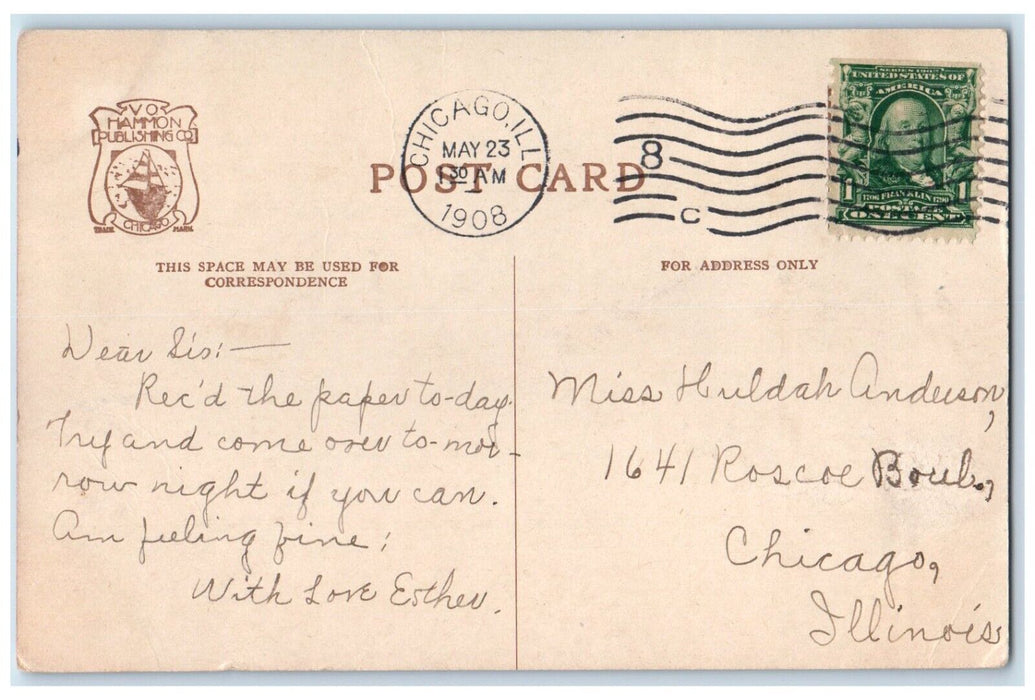 V.O.
HAMMON
PUBLISHING CO.
CHICAGO
TRADE MARK
CHICAGO, ILL.
MAY 23
1 30 AM
1908
8
C
POST CARD
SERIES 1902
UNITED STATES OF
AMERICA
1 1
1706 FRANKLIN 1790
POSTAGE
ONE CENT
THIS SPACE MAY BE USED FOR
CORRESPONDENCE
FOR ADDRESS ONLY
Dear Sis:—
Rec'd the paper to-day.
Try and come over to-mor-
row night if you can.
Am feeling fine;
With Love Esther.
Miss Huldah Anderson,
1641 Roscoe Boul.,
Chicago,
Illinois